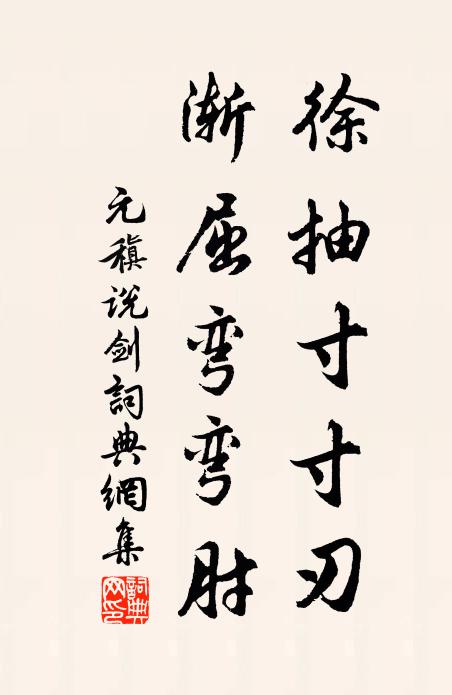 徐抽寸寸刃
渐屈弯弯肘
元稹说剑詞典網集
詞典网印